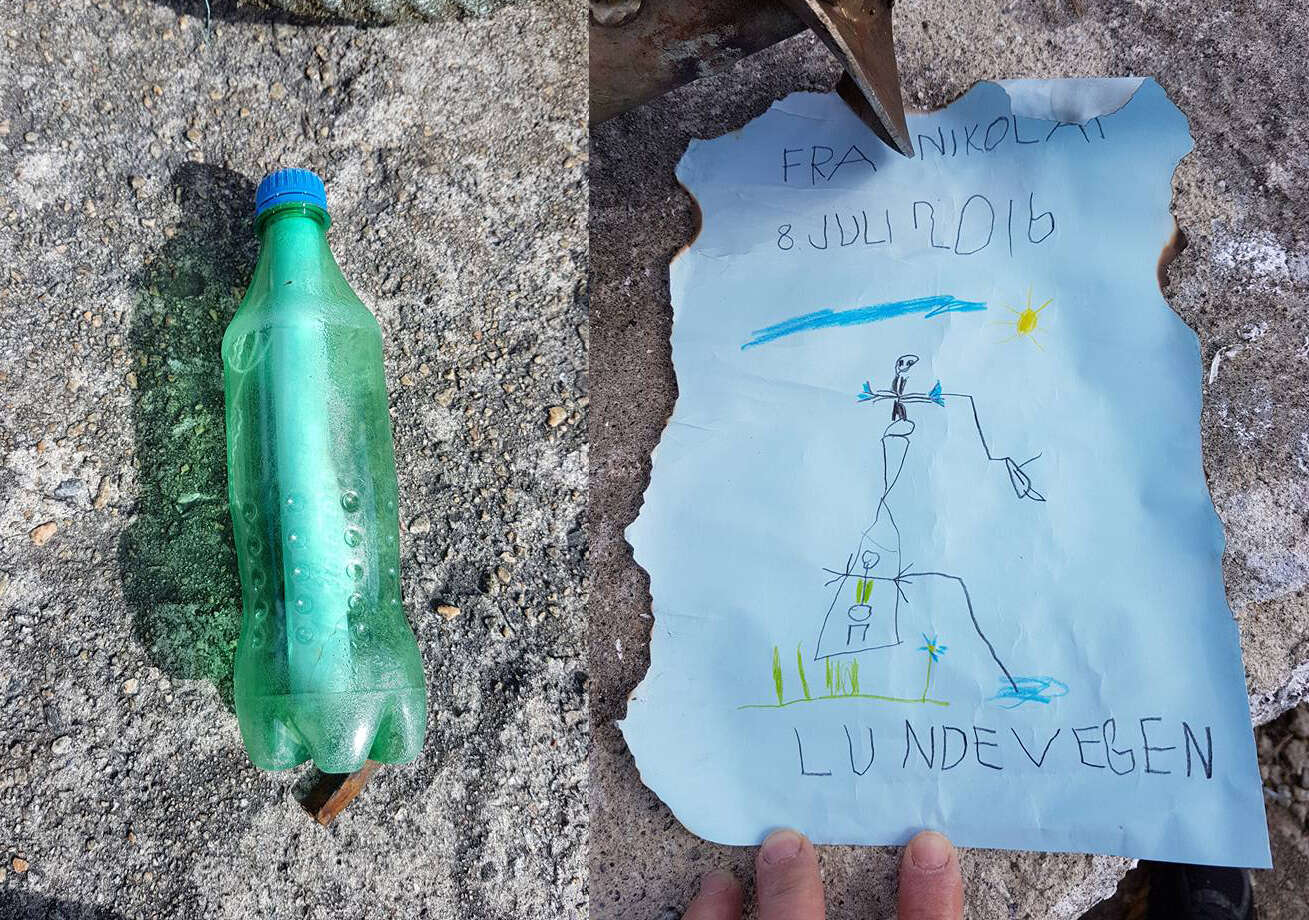 FRA NIKOLAI
8. JULI 2016
LUNDEVEGEN